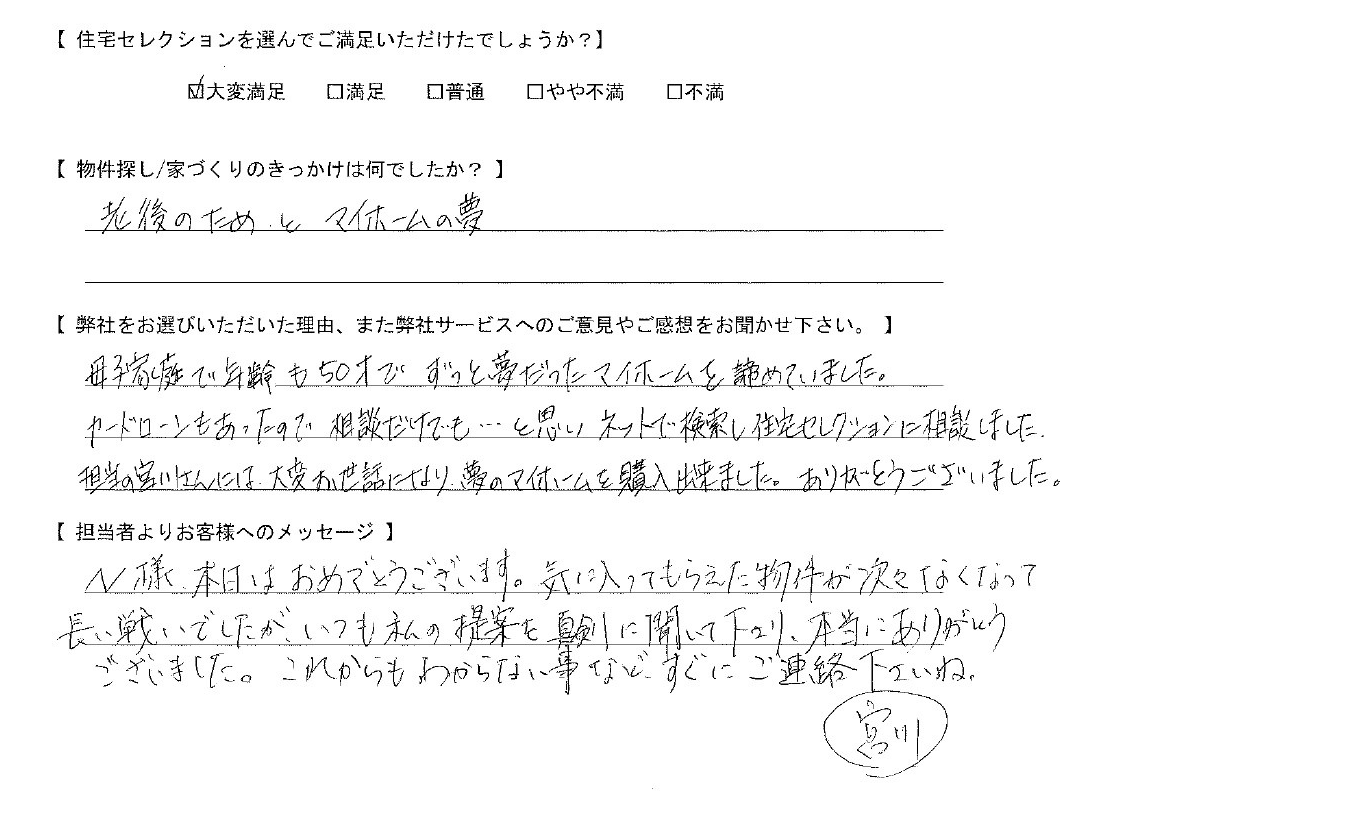 【 住宅セレクションを選んでご満足いただけたでしょうか？】
☑大変満足 □満足 □普通 □やや不満 □不満
【 物件探し/家づくりのきっかけは何でしたか？ 】
老後のため と マイホームの夢
【 弊社をお選びいただいた理由、また弊社サービスへのご意見やご感想をお聞かせ下さい。 】
母子家庭で年齢も50才で ずっと夢だったマイホームを諦めていました。
カードローンもあったので 相談だけでも… と思い ネットで検索し住宅セレクションに相談しました.
担当の宮川さんには、大変お世話になり、夢のマイホームを購入出来ました。ありがとうございました。
【 担当者よりお客様へのメッセージ 】
N様、本日はおめでとうございます。気に入ってもらえた物件が次々なくなって
長い戦いでしたが、いつも私の提案を真剣に聞いて下さり、本当にありがとう
ございました。これからもわからない事など、すぐにご連絡下さいね。
宮川